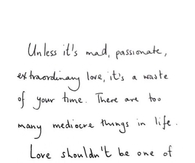 Unless it's mad, passionate,
extraordinary love, it's a waste
of your time. There are too
many mediocre things in life.
Love shouldn't be one of